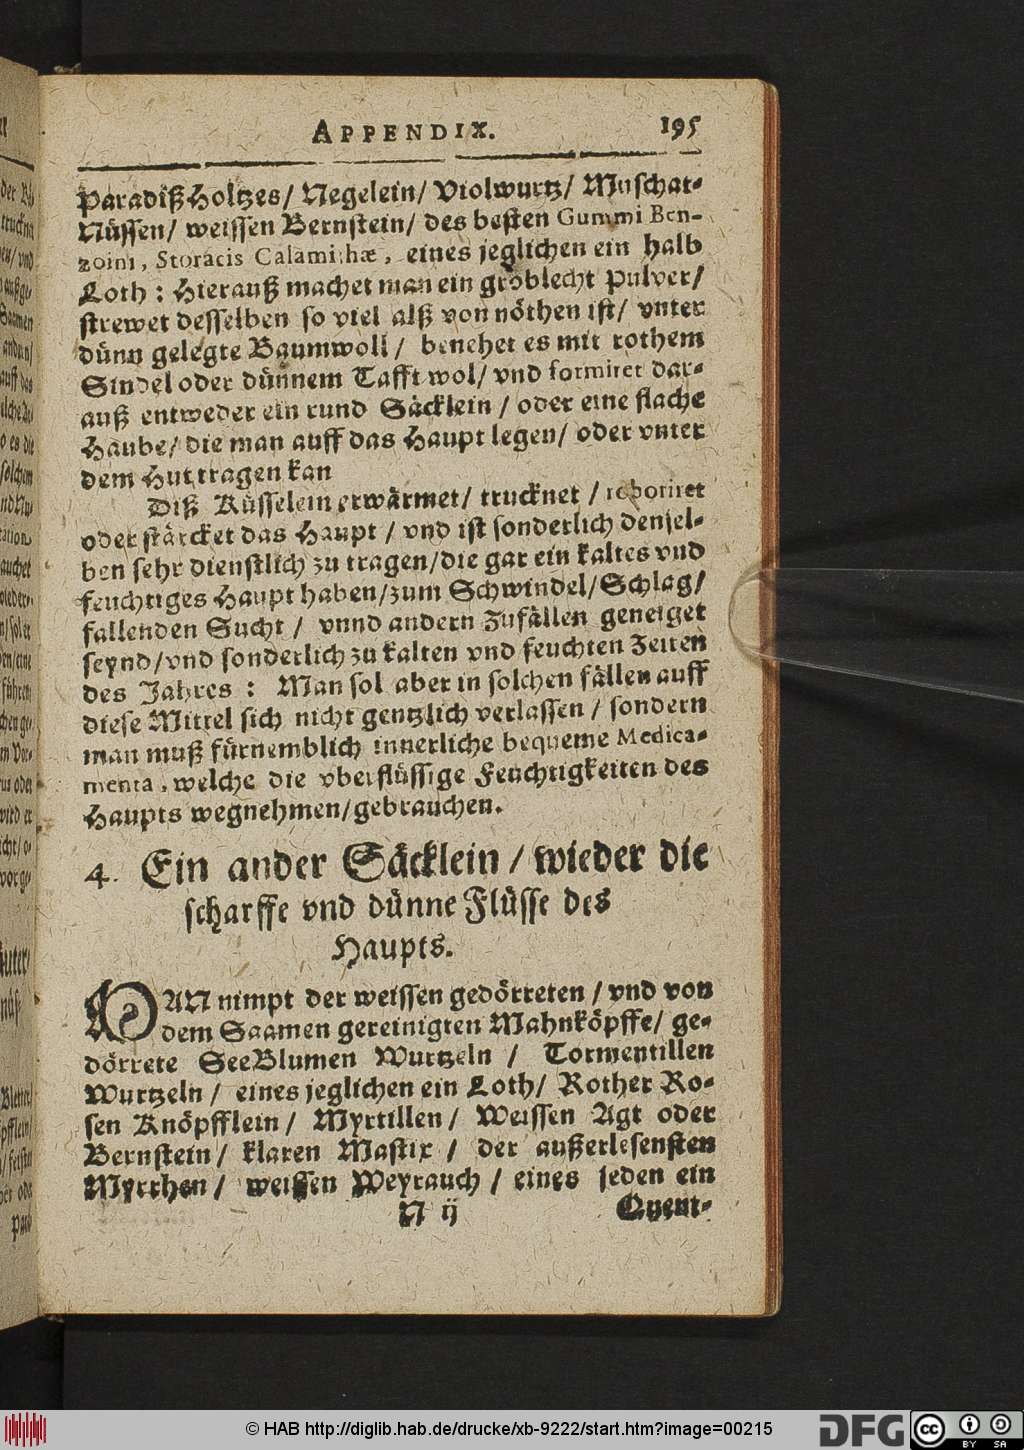 APPENDIX. 195
ParadißHoltzes/ Negelein/ Violwurtz/ Muschat-
Nüssen/ weissen Bernstein/ des besten Gummi Ben-
zoini, Storacis Calamithæ, eines jeglichen ein halb
Loth: Hierauß machet man ein gröblecht Pulver/
strewet desselben so viel alß von nöthen ist/ vnter
dünn gelegte Baumwoll/ benehet es mit rothem
Sindel oder dünnem Tafft wol/ vnd formiret dar-
auß entweder ein rund Säcklein/ oder eine flache
Haube/ die man auff das Haupt legen/ oder vnter
dem Hut tragen kan
Diß Küsselein erwärmet/ trucknet/ roboriret
oder stärcket das Haupt/ vnd ist sonderlich densel-
ben sehr dienstlich zu tragen/ die gar ein kaltes vnd
feuchtiges Haupt haben/ zum Schwindel/ Schlag/
fallenden Sucht/ vnnd andern Zufällen geneiget
seynd/ vnd sonderlich zu kalten vnd feuchten Zeiten
des Jahres: Man sol aber in solchen fällen auff
diese Mittel sich nicht gentzlich verlassen/ sondern
man muß fürnemblich innerliche bequeme Medica-
menta, welche die vberflüssige Feuchtigkeiten des
Haupts wegnehmen/ gebrauchen.
4. Ein ander Säcklein/ wieder die
scharffe vnd dünne Flüsse des
Haupts.
MAN nimpt der weissen gedörreten/ vnd von
dem Saamen gereinigten Mahnköpffe/ ge-
dörrete SeeBlumen Wurtzeln/ Tormentillen
Wurtzeln/ eines jeglichen ein Loth/ Rother Ro-
sen Knöpfflein/ Myrtillen/ Weissen Agt oder
Bernstein/ klaren Mastix/ der außerlesensten
Myrrhen/ weissen Weyrauch/ eines jeden ein
N ij Quent-
© HAB http://diglib.hab.de/drucke/xb-9222/start.htm?image=00215
DFG cc BY SA